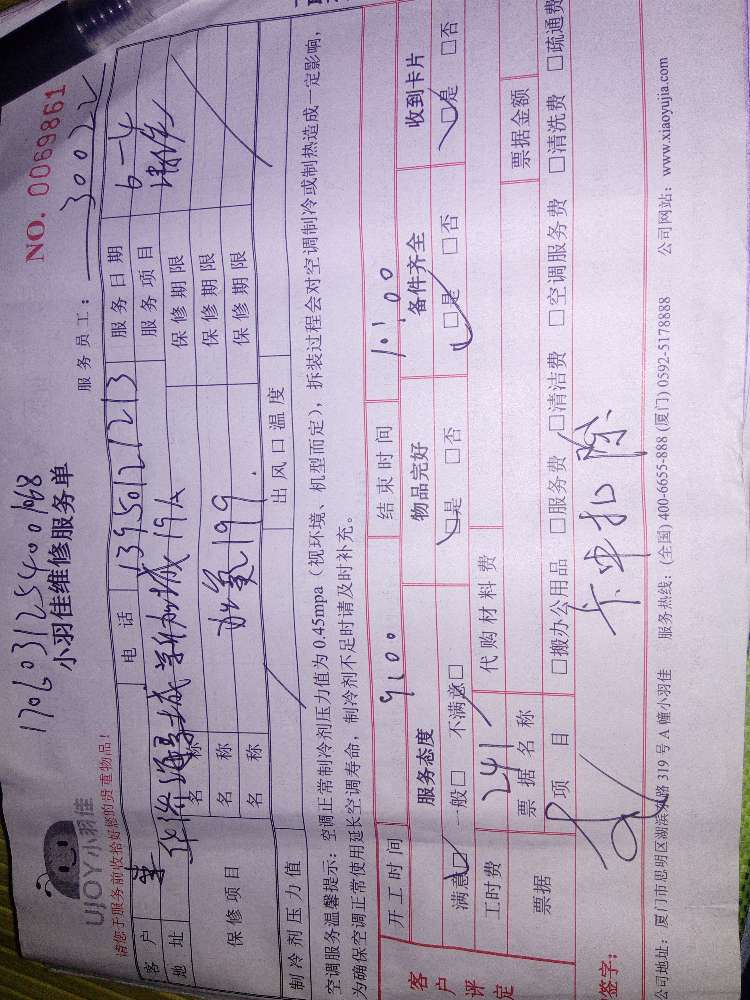 1706031254001068
NO. 0069861
UJOY小羽佳
小羽佳维修服务单
请您于服务前收拾好您的贵重物品！
服务员工： 30022
客户 电话 13950121213 服务日期 6-4
地址 新加城19A 服务项目
保修项目 名称 保修期限
名称 加氟199. 保修期限
名称 保修期限
制冷剂压力值 出风口温度
空调服务温馨提示：空调正常制冷剂压力值为0.45mpa（视环境、机型而定），拆装过程会对空调制冷或制热造成一定影响，
为确保空调正常使用延长空调寿命，制冷剂不足时请及时补充。
客户评定
开工时间 9:00 结束时间 10:00
服务态度 物品完好 备件齐全 收到卡片
满意□ 一般□ 不满意□ □是 □否 □是 □否 □是 □否
工时费 241 代购材料费
票据 票据名称 票据金额
项目 □搬办公用品 □服务费 □清洁费 □空调服务费 □清洗费 □疏通费
签字： 卡中扣除
公司地址：厦门市思明区湖滨南路319号A幢小羽佳 服务热线：(全国) 400-6655-888 (厦门) 0592-5178888 公司网站：www.xiaoyujia.com